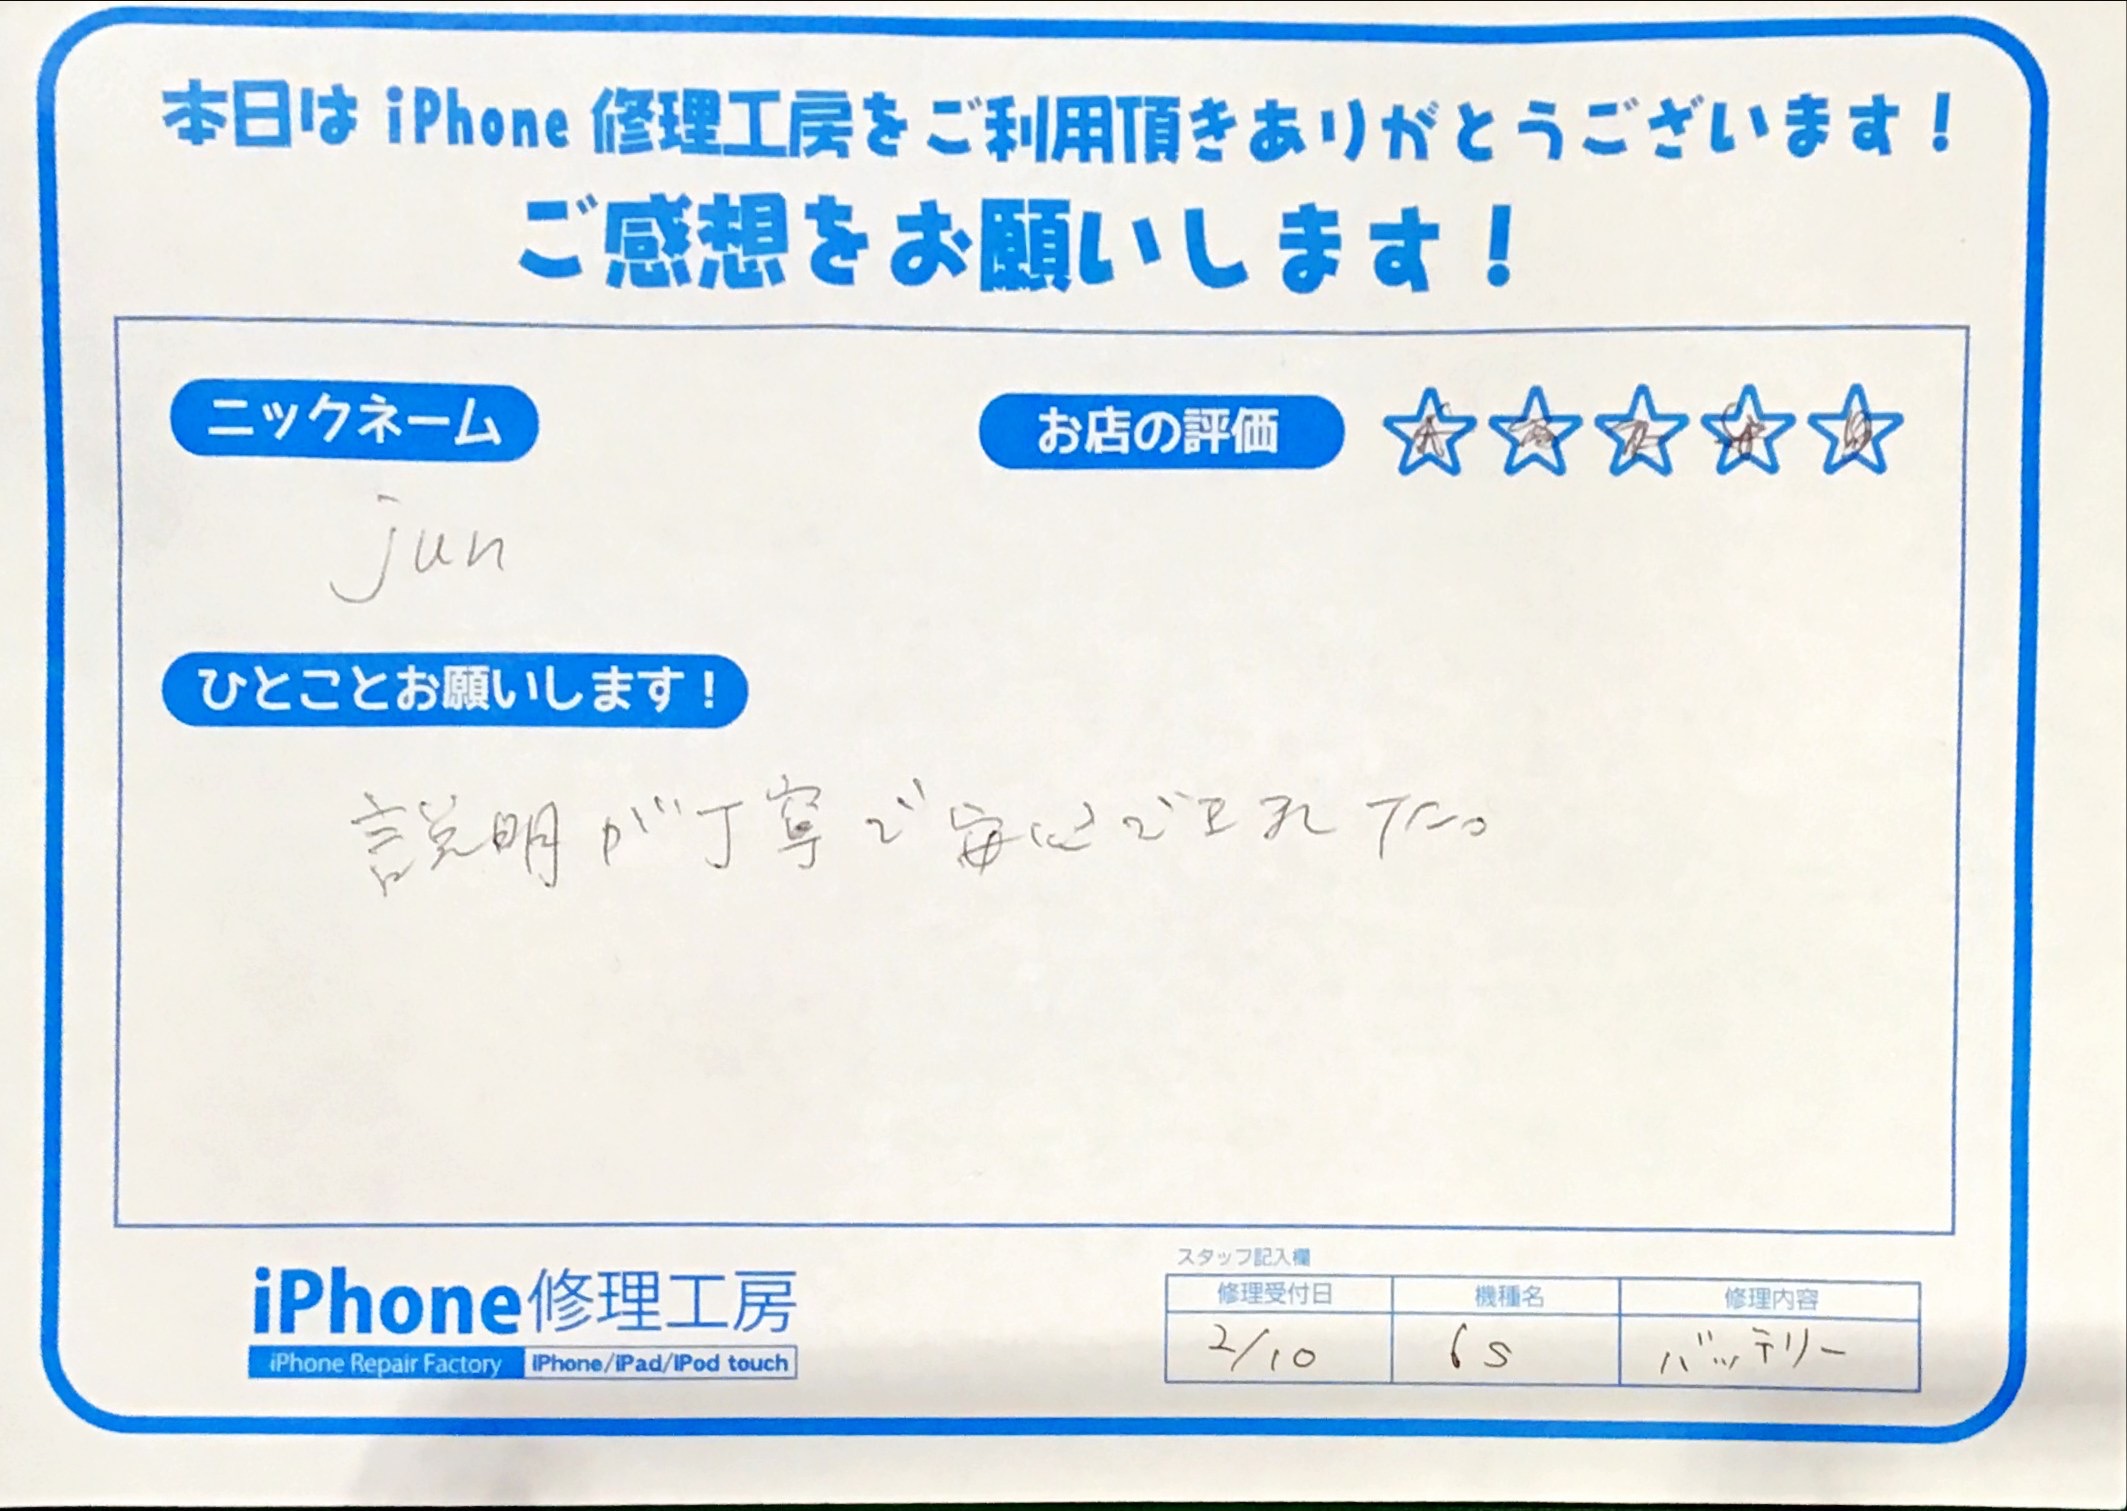 本日は iPhone 修理工房をご利用頂きありがとうございます！
ご感想をお願いします！
ニックネーム
お店の評価
jun
ひとことお願いします！
説明が丁寧で安心できました。
iPhone修理工房
iPhone Repair Factory iPhone/iPad/iPod touch
スタッフ記入欄
修理受付日 機種名 修理内容
2/10 6s バッテリー